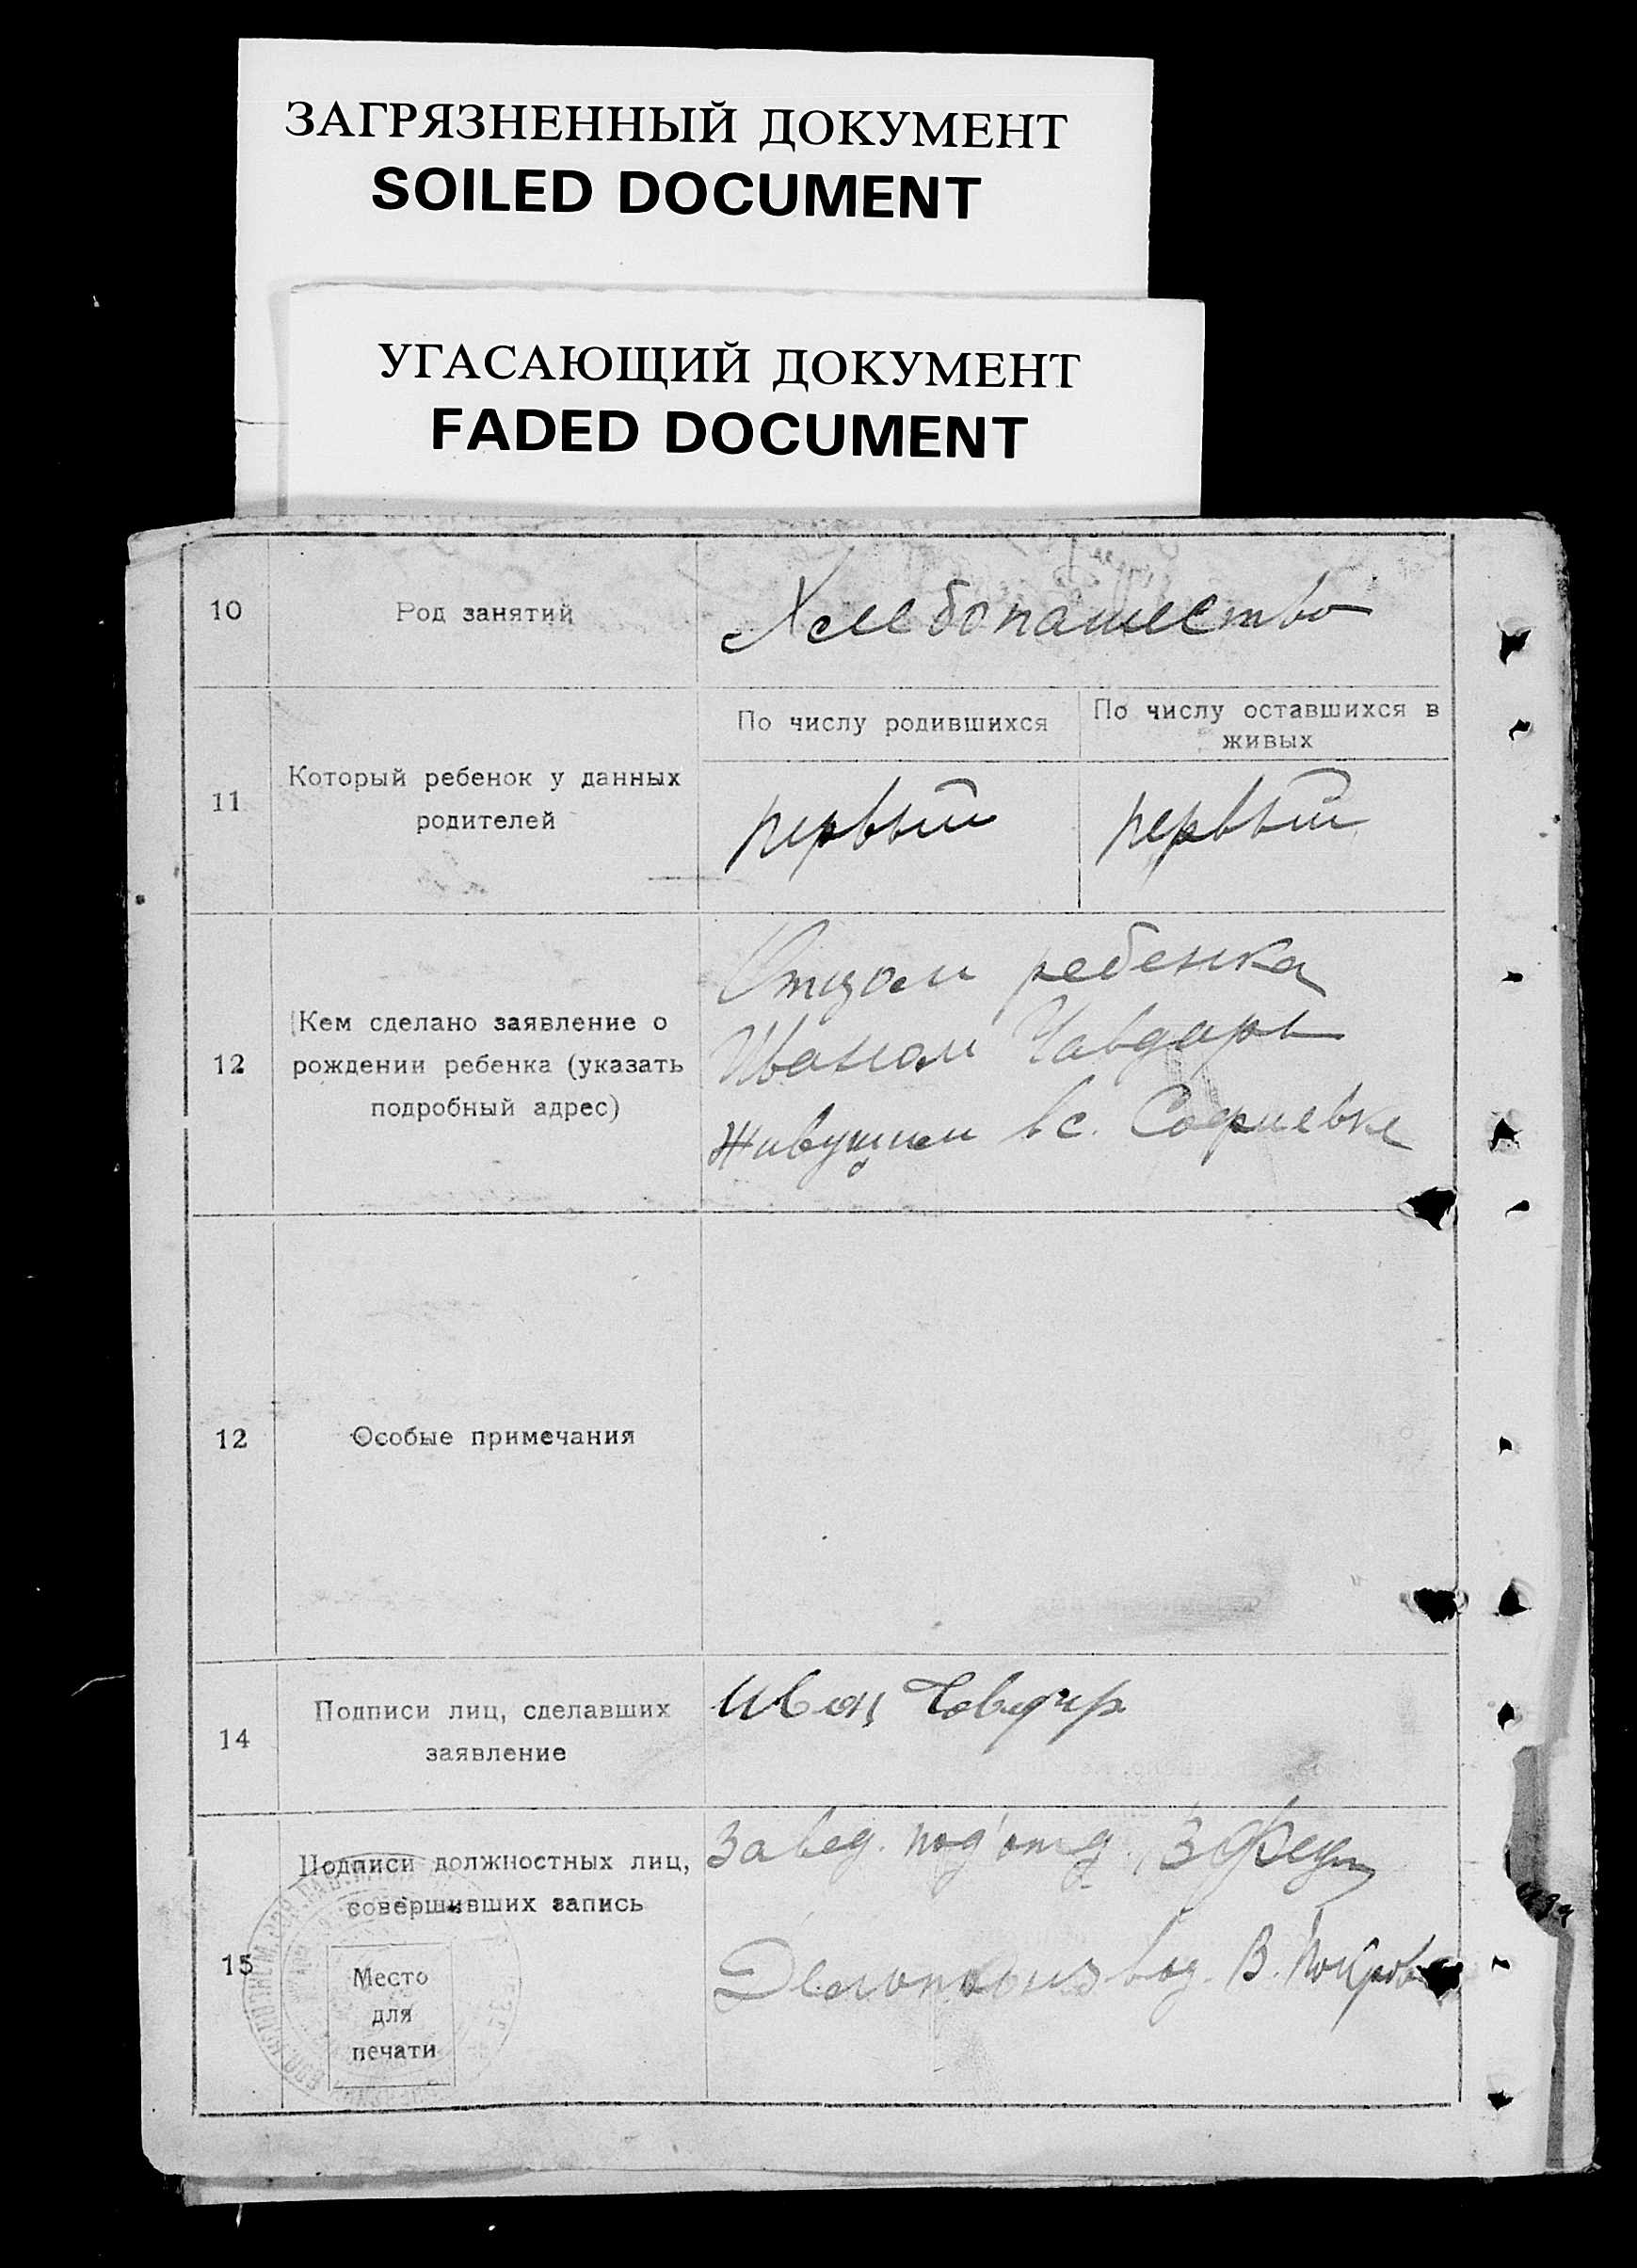 ЗАГРЯЗНЕННЫЙ ДОКУМЕНТ
SOILED DOCUMENT
УГАСАЮЩИЙ ДОКУМЕНТ
FADED DOCUMENT
10
Род занятий
Хлебопашество
11
Который ребенок у данных
родителей
По числу родившихся
По числу оставшихся в
живых
первый
первый
12
(Кем сделано заявление о
рождении ребенка (указать
подробный адрес)
Отцом ребенка
Иваном Чавдарь
живущим в с. Софиевке
12
Особые примечания
14
Подписи лиц, сделавших
заявление
Иван Човдар
15
Подписи должностных лиц,
совершивших запись
Место
для
печати
Завед. подотд.
Делопроизвод. В.